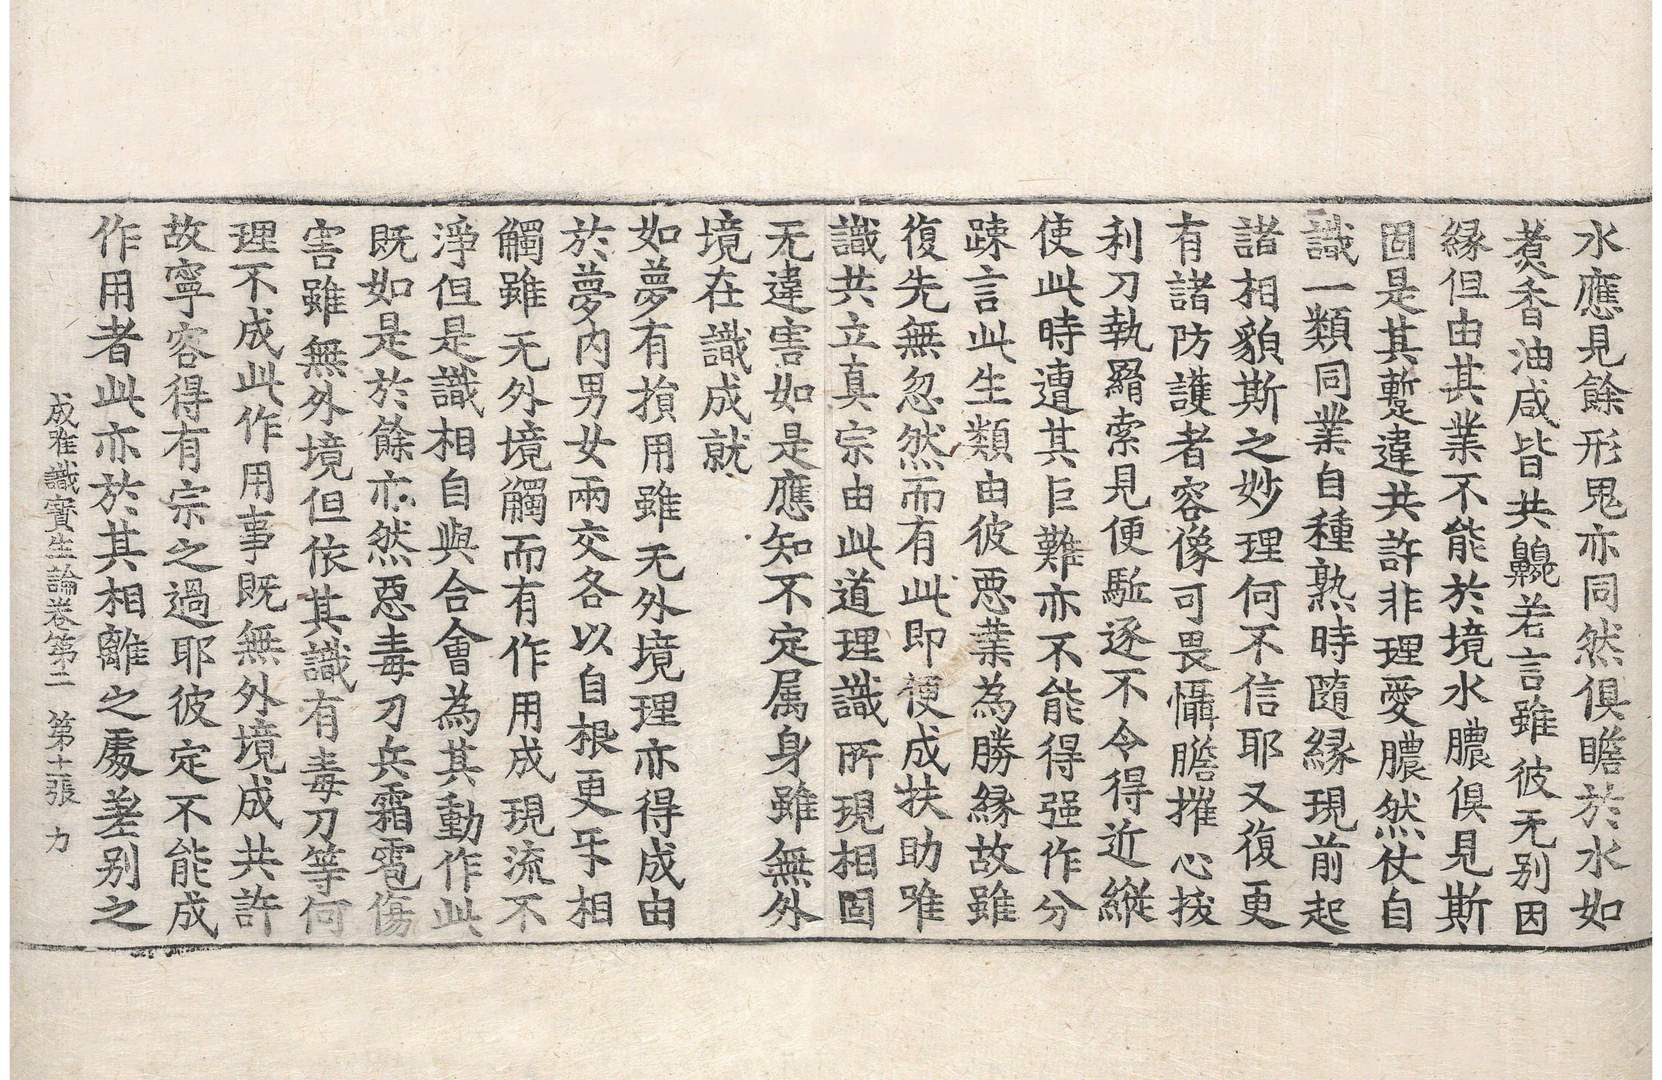 水應見餘形鬼亦同然俱瞻於水如
煑香油咸皆共齅若言雖彼无別因
縁但由其業不能於境水膿俱見斯
固是其蹔違共許非理愛膿然仗自
識一類同業自種熟時隨縁現前起
諸相貌斯之妙理何不信耶又復更
有諸防護者容像可畏懾膽摧心拔
利刀執羂索見便駈逐不令得近縦
使此時遭其巨難亦不能得强作分
踈言此生類由彼惡業為勝縁故雖
復先無忽然而有此即便成扶助唯
識共立真宗由此道理識所現相固
无違害如是應知不定属身雖無外
境在識成就
如夢有損用雖无外境理亦得成由
於夢內男女兩交各以自根更㸦相
觸雖无外境觸而有作用成現流不
淨但是識相自與合會為其動作此
既如是於餘亦然惡毒刀兵霜雹傷
害雖無外境但依其識有毒刀等何
理不成此作用事既無外境成共許
故寧容得有宗之過耶彼定不能成
作用者此亦於其相離之處差別之
成唯識寶生論卷第二 第十張 力